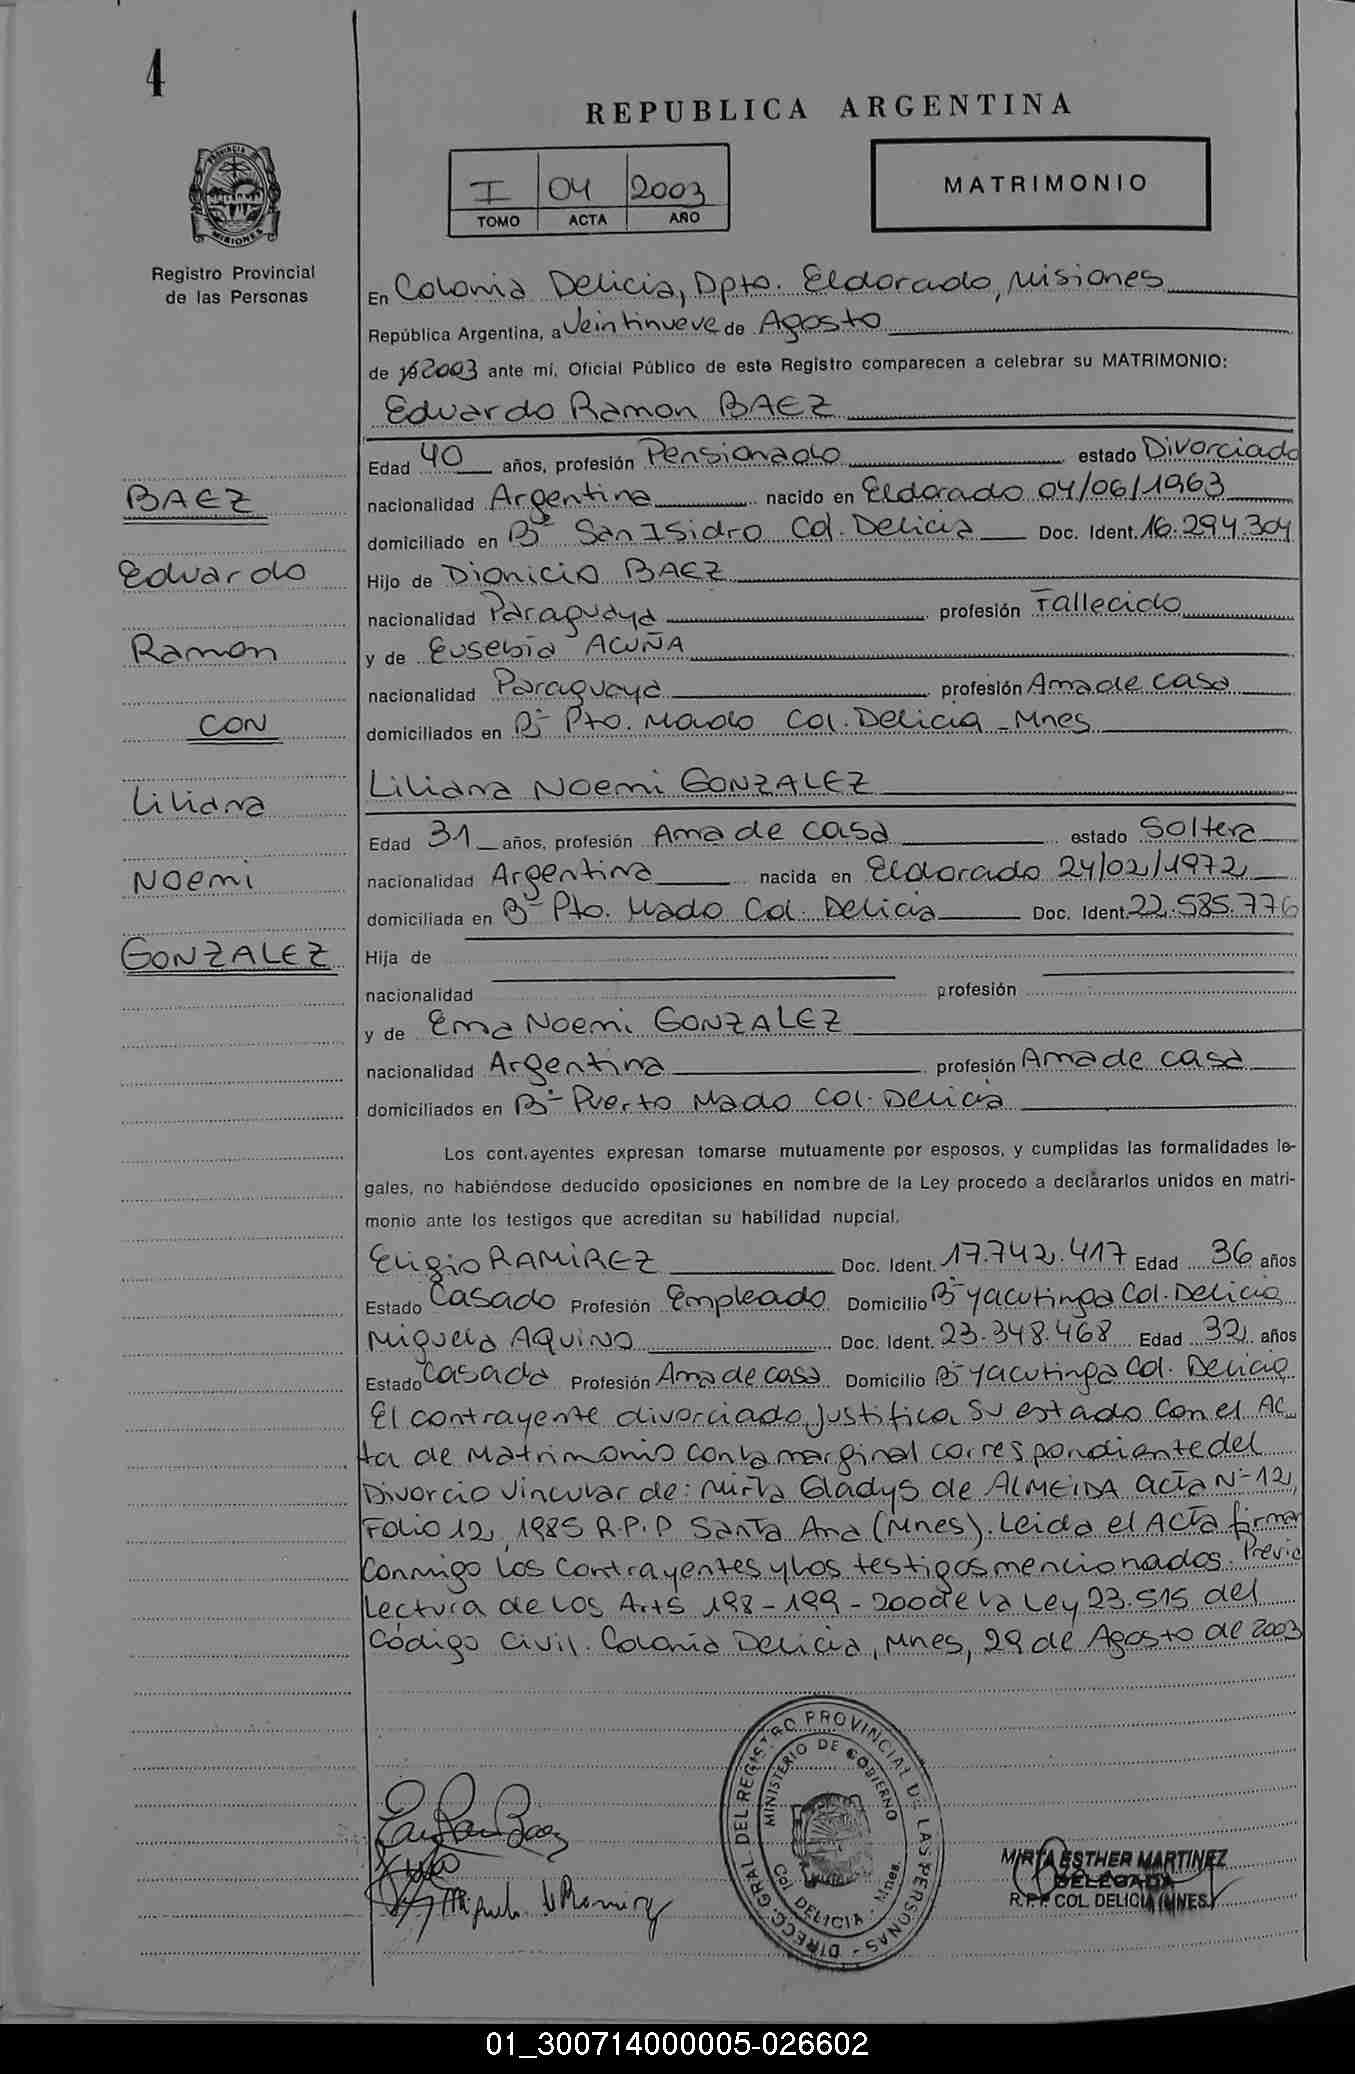 4
REPUBLICA ARGENTINA
I 04 2003
TOMO ACTA AÑO
MATRIMONIO
PROVINCIA DE
MISIONES
Registro Provincial
de las Personas
En Colonia Delicia, Dpto. Eldorado, Misiones
República Argentina, a Veintinueve de Agosto
de 2003 ante mí, Oficial Público de este Registro comparecen a celebrar su MATRIMONIO:
Eduardo Ramon BAEZ
Edad 40 años, profesión Pensionado estado Divorciado
nacionalidad Argentina nacido en Eldorado 04/06/1963
domiciliado en Bº San Isidro Col. Delicia Doc. Ident. 16.294.304
Hijo de Dionicio BAEZ
nacionalidad Paraguaya profesión Fallecido
y de Eusebia ACUÑA
nacionalidad Paraguaya profesión Ama de casa
domiciliados en Bº Pto. Mado Col. Delicia - Mnes
Liliana Noemi GONZALEZ
Edad 31 años, profesión Ama de casa estado Soltera
nacionalidad Argentina nacida en Eldorado 24/02/1972
domiciliada en Bº Pto. Mado Col. Delicia Doc. Ident. 22.585.776
Hija de
nacionalidad profesión
y de Ema Noemi GONZALEZ
nacionalidad Argentina profesión Ama de casa
domiciliados en Bº Puerto Mado Col. Delicia
BAEZ
Eduardo
Ramon
CON
Liliana
Noemi
GONZALEZ
Los contrayentes expresan tomarse mutuamente por esposos, y cumplidas las formalidades le-
gales, no habiéndose deducido oposiciones en nombre de la Ley procedo a declararlos unidos en matri-
monio ante los testigos que acreditan su habilidad nupcial.
Eligio RAMIREZ Doc. Ident. 17.742.417 Edad 36 años
Estado Casado Profesión Empleado Domicilio Bº Yacutinga Col. Delicia
Miguela AQUINO Doc. Ident. 23.348.468 Edad 32 años
Estado Casada Profesión Ama de casa Domicilio Bº Yacutinga Col. Delicia
El contrayente divorciado, justifica su estado con el Ac
ta de Matrimonio con la marginal correspondiente del
Divorcio Vincular de: Mirta Gladys de ALMEIDA acta Nº 12,
Folio 12, 1985 R.P.P Santa Ana (Mnes). Leida el Acta firman
conmigo los contrayentes y los testigos mencionados. Previa
Lectura de los Arts 198 - 199 - 200 de la Ley 23.515 del
Código Civil. Colonia Delicia, Mnes, 29 de Agosto de 2003
DIRECC. GRAL DEL REGISTRO PROVINCIAL DE LAS PERSONAS -
MINISTERIO DE GOBIERNO
Col. DELICIA - Mnes.
MIRTA ESTHER MARTINEZ
DELEGADA
R.P.P COL. DELICIA (MNES)
01_300714000005-026602